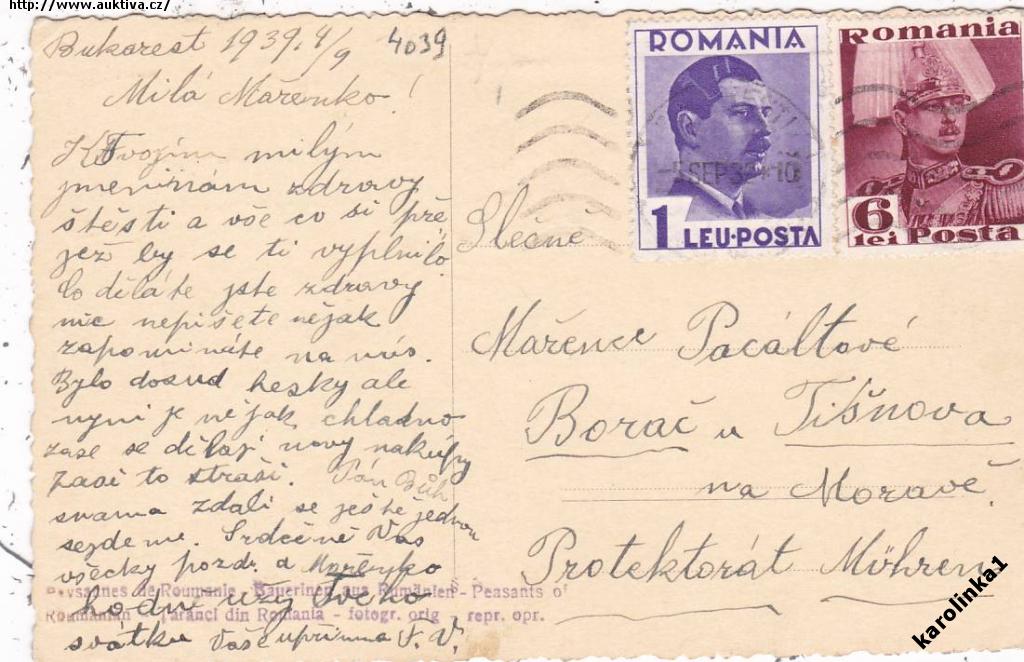 http://www.auktiva.cz/
Bukarest 1939. 4/9 4039
Milá Mařenko!
K Tvojím milým
jmeninám zdraví
štěstí a vše co si pře
ješ by se ti vyplnilo
Co děláte jste zdravy
nic nepíšete nějak
zapomínáte na nás.
Bylo dosud hesky ale
nyní je nějak chladno
zase se dělají nový nákupy
začí to straší. Pán Bůh
s náma zdali se ještě jednou
sejdeme. Srdečně Vás
všecky pozd. a Mařenko
hodně užij Tvého
svátku Vaše upřímna F. V.
ROMANIA
1 LEU·POSTA
Romania
6 lei Posta
SEP 39
Slečně
Mařence Pacáltové
Borač u Tišnova
na Moravě.
Protektorát Möhren
Paysannes de Roumanie - Bäuerinen aus Rumänien - Peasants of
Roumanian - Țaranci din Romania - fotogr. orig - repr. opr.
karolinka1